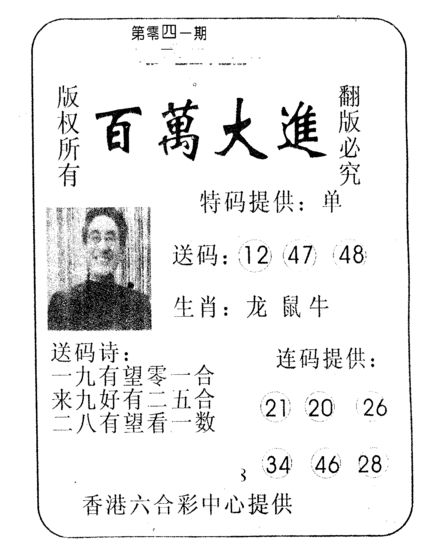 第零四一期
版权所有
百萬大進
翻版必究
特码提供：单
送码：12 47 48
生肖：龙 鼠 牛
送码诗：
一九有望零一合
来九好有二五合
二八有望看一数
连码提供：
21 20 26
34 46 28
香港六合彩中心提供